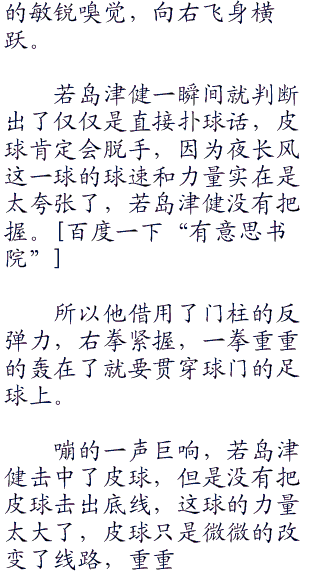 的敏锐嗅觉，向右飞身横
跃。
若岛津健一瞬间就判断
出了仅仅是直接扑球话，皮
球肯定会脱手，因为夜长风
这一球的球速和力量实在是
太夸张了，若岛津健没有把
握。[百度一下“有意思书
院”]
所以他借用了门柱的反
弹力，右拳紧握，一拳重重
的轰在了就要贯穿球门的足
球上。
嘣的一声巨响，若岛津
健击中了皮球，但是没有把
皮球击出底线，这球的力量
太大了，皮球只是微微的改
变了线路，重重